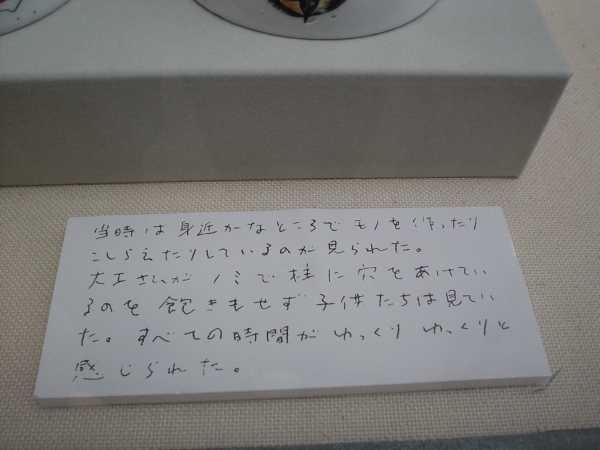 当時は身近かなところでモノを作ったり
こしらえたりしているのが見られた。
大工さんがノミで柱に穴をあけてい
るのを飽きもせず子供たちは見てい
た。すべての時間がゆっくりゆっくりと
感じられた。